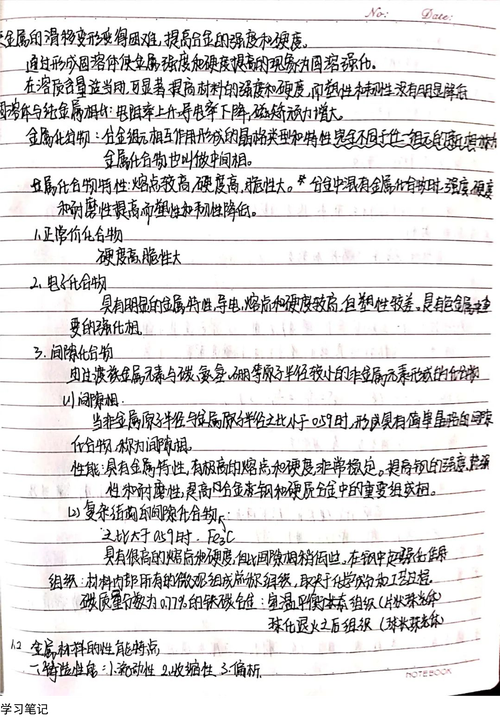 No: Date:
金属的滑移变形变得困难,提高合金的强度和硬度。
通过形成固溶体使金属强度和硬度提高的现象为固溶强化。
在溶质含量适当时,可显著提高材料的强度和硬度,而塑性和韧性没有明显降低
固溶体与纯金属相比:电阻率上升,导电率下降,磁矫顽力增大。
金属化合物:合金组元相互作用形成的晶格类型和特性完全不同于任一组元的
金属化合物也叫做中间相。
金属化合物特性:熔点较高,硬度高,脆性大。*合金中混有金属化合物时,强度,硬度
和耐磨性提高,而塑性和韧性降低。
1.正常价化合物
硬度高,脆性大
2.电子化合物
具有明显的金属特性,导电,熔点和硬度较高,但塑性较差,具有
要的强化相.
3.间隙化合物
由过渡族金属元素与碳、氮、氢、硼等原子半径较小的非金属元素形成的化合物
(1)间隙相.
当非金属原子半径与金属原子半径之比小于0.59时,形成具有简单晶格的间隙
化合物,称为间隙相.
性能:具有金属特性,有极高的熔点和硬度,非常稳定。提高钢的强度,
性和耐磨性,是高合金废钢和硬质合金中的重要组成相.
(2)复杂结构的间隙化合物
之比大于0.59时. Fe3C
具有很高的熔点和硬度,但比间隙相稍低些,在钢中起强化作用
组织:材料内部所有的微观组成总称组织,取决于化学成分和工艺过程
碳质量分数为0.77%的铁碳合金:室温平衡状态组织(片状珠光体)
球化退火之后组织(球状珠光体)
1.2 金属材料的性能特点
一.铸造性能:1.流动性 2.收缩性 3.偏析.
NOTEBOOK
学习笔记